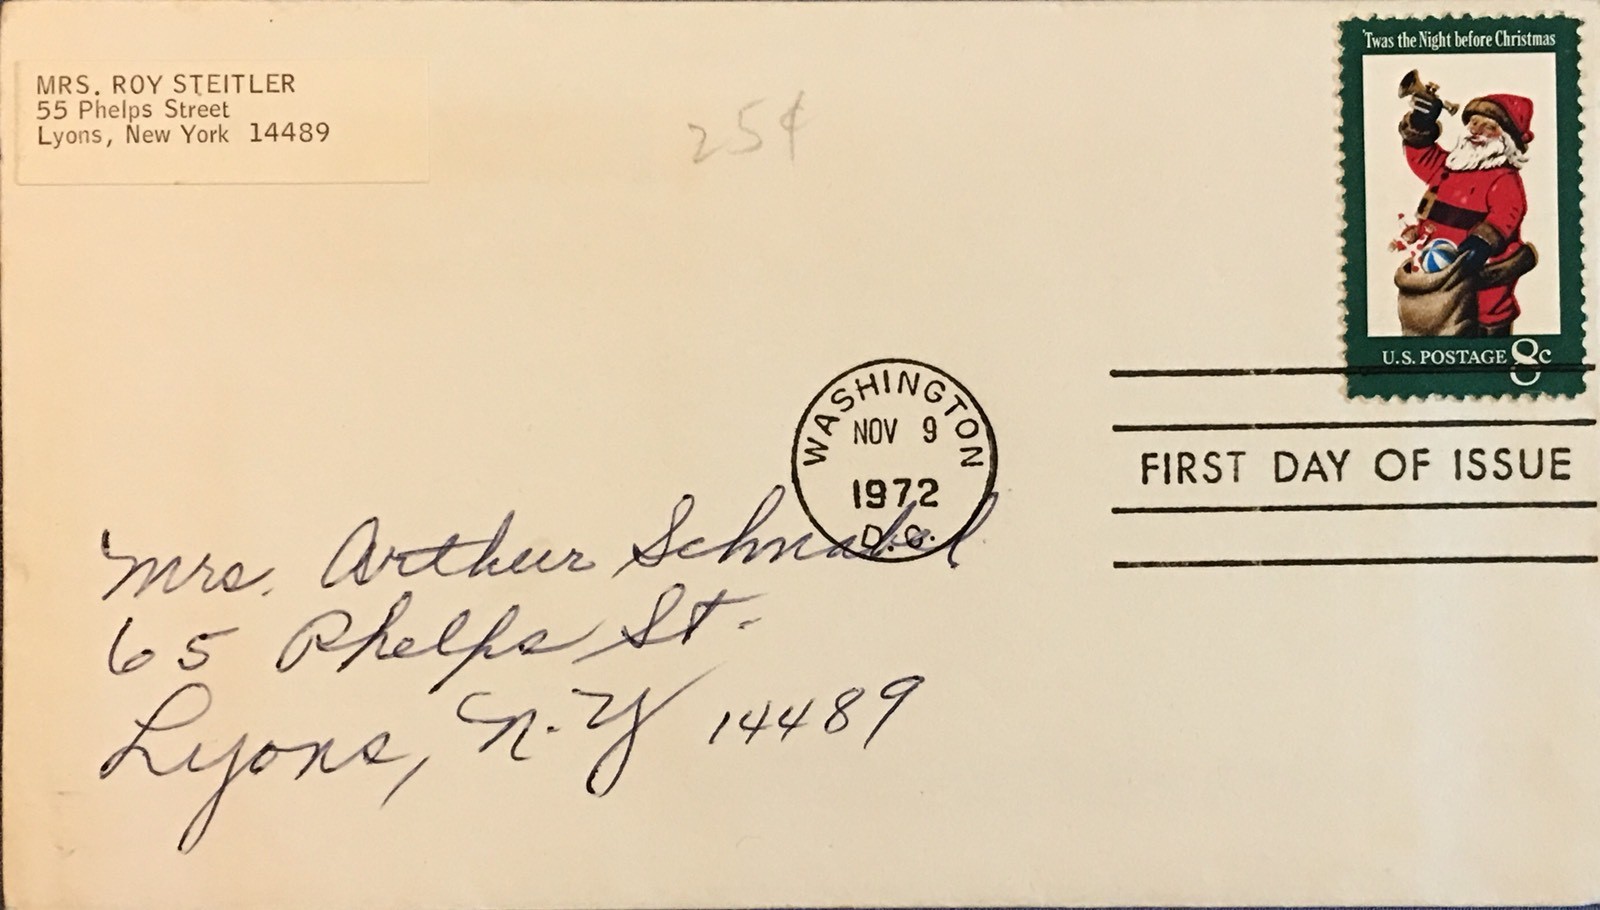 MRS. ROY STEITLER
55 Phelps Street
Lyons, New York 14489
25¢
'Twas the Night before Christmas
U.S. POSTAGE 8c
WASHINGTON
NOV 9
1972
D.C.
FIRST DAY OF ISSUE
Mrs. Arthur Schnabel
65 Phelps St.
Lyons, N.Y 14489